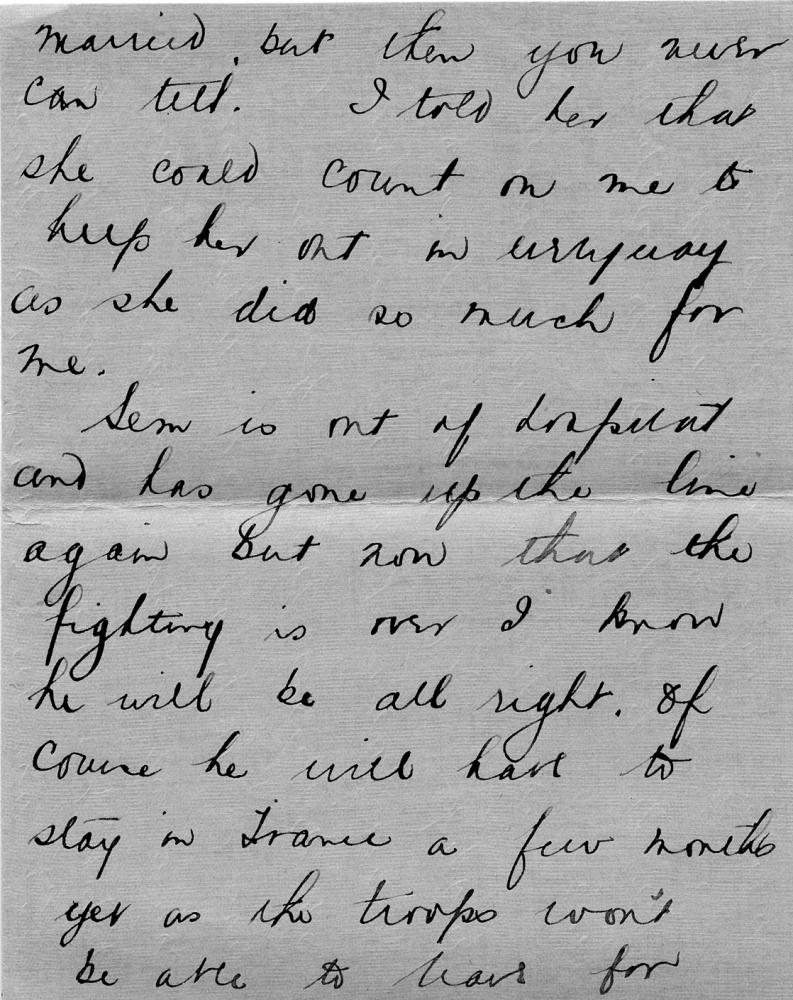 married, but then you never
can tell. I told her that
she could count on me to
help her out in every way
as she did so much for
me.
is out of hospital
and has gone up the line
again but now that the
fighting is over I know
he will be all right. Of
course he will have to
stay in France a few months
yet as the troops won't
be able to leave for